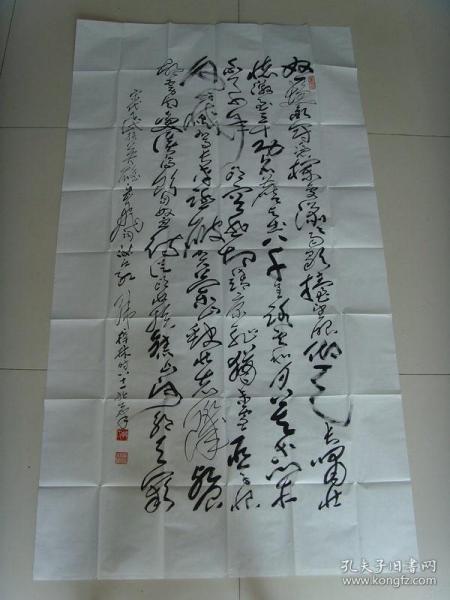 怒发冲冠凭栏处潇潇雨歇抬望眼仰天长啸壮
怀激烈三十功名尘与土八千里路云和月莫等闲
白了少年头空悲切靖康耻犹未雪臣子恨
何时灭驾长车踏破贺兰山缺壮志饥餐
胡虏肉笑谈渴饮匈奴血待从头收拾旧山河朝天阙
宋代民族英雄岳飞词满江红
孔夫子旧书网
www.kongfz.com